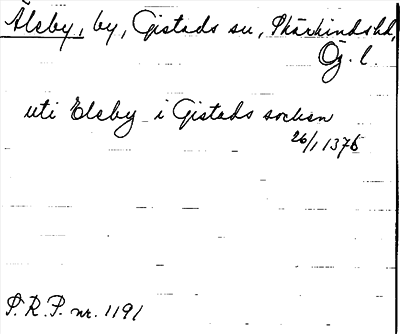 Älsby, by, Gistads sn, Skärkinds hd,
Ög. l.
uti Elsby i Gistads sochen
26/1 1376
S.R.P. nr. 1191